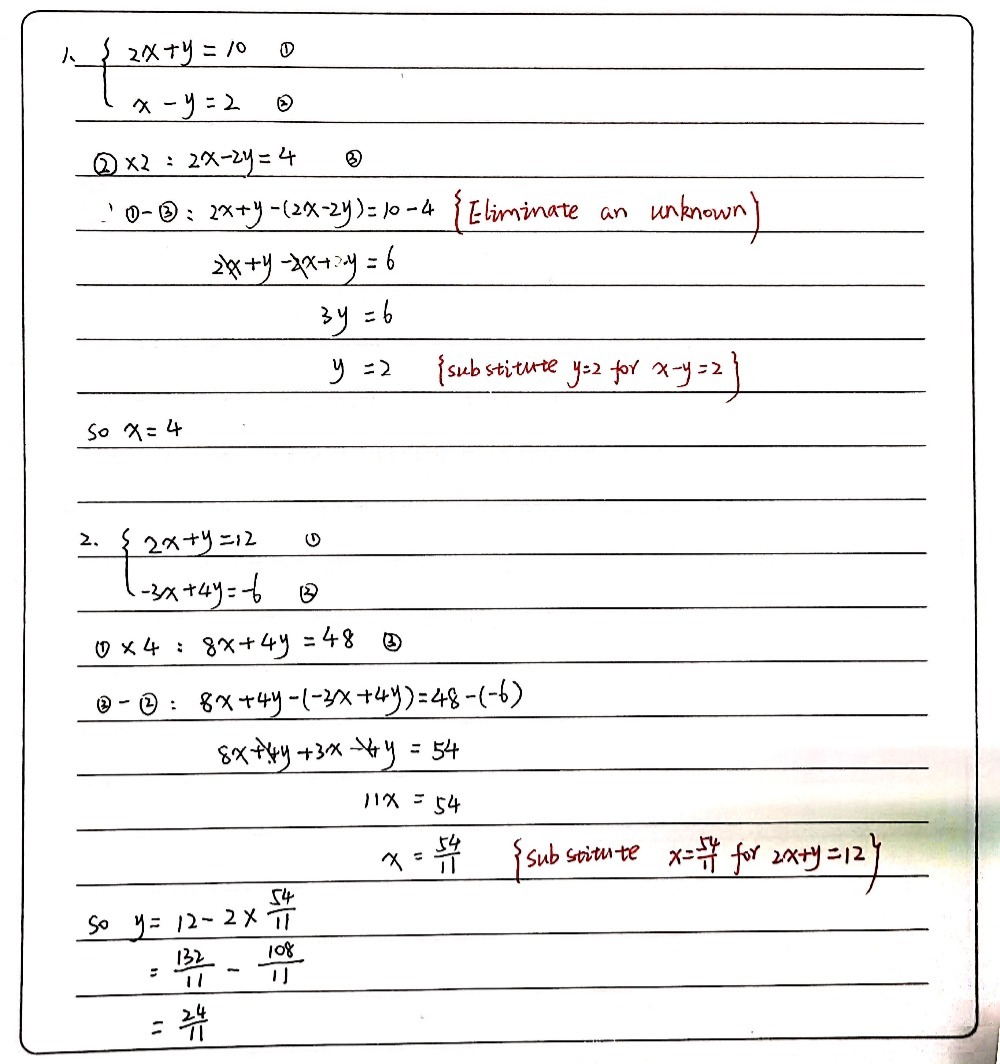 1. { 2x+y=10 ①
x-y=2 ②
②×2: 2x-2y=4 ③
①-③: 2x+y-(2x-2y)=10-4 {Eliminate an unknown}
2x+y-2x+2y=6
3y=6
y=2 {substitute y=2 for x-y=2}
so x=4
2. { 2x+y=12 ①
-3x+4y=-6 ②
①×4: 8x+4y=48 ③
③-②: 8x+4y-(-3x+4y)=48-(-6)
8x+4y+3x-4y=54
11x=54
x=54/11 {substitute x=54/11 for 2x+y=12}
so y=12-2×54/11
=132/11-108/11
=24/11